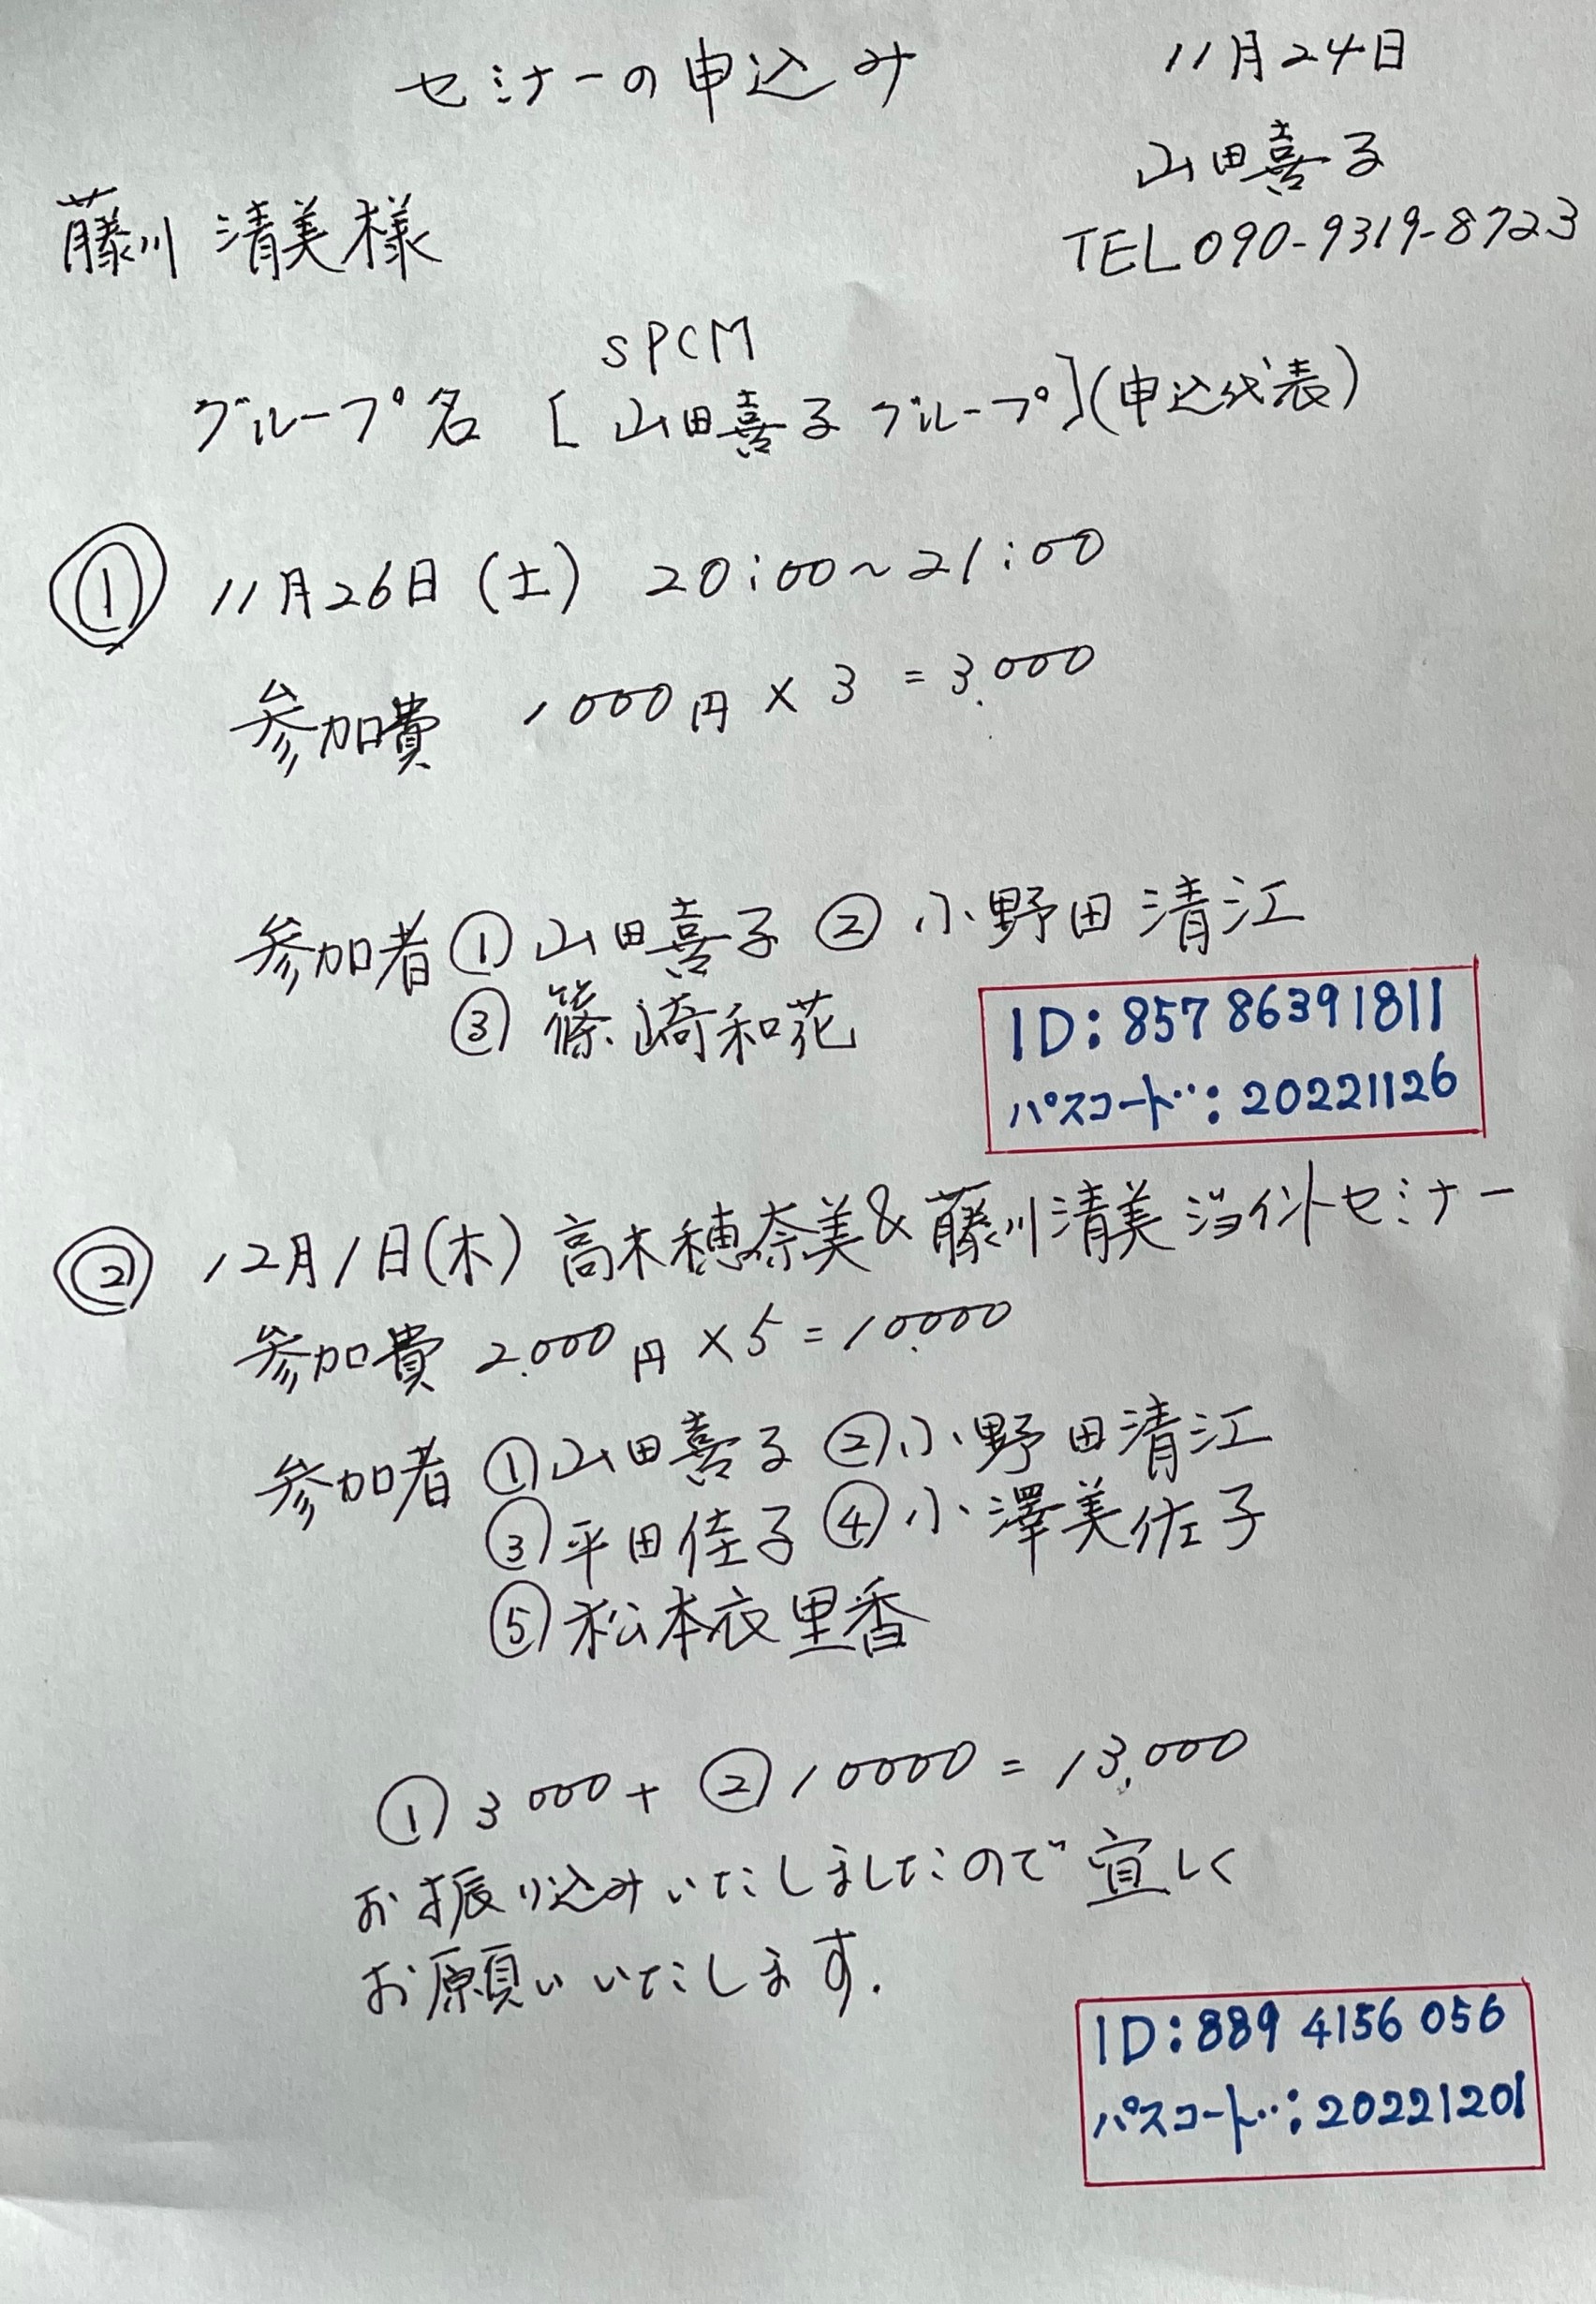 セミナーの申込み
11月24日
山田喜子
TEL 090-9319-8723
藤川 清美様
SPCM
グループ名 [山田喜子グループ](申込代表)
① 11月26日(土) 20:00~21:00
参加費 1000円×3=3.000
参加者 ① 山田喜子 ② 小野田清江
③ 篠崎和花
ID:857 86391811
パスコード:20221126
② 12月1日(木) 高木穂奈美&藤川清美 セミナー
参加費 2.000円×5=10.000
参加者 ① 山田喜子 ② 小野田清江
③ 平田佳子 ④ 小澤美佐子
⑤ 松本衣里香
① 3000+② 10000=13,000
お振り込みいたしましたので宜しく
お願いいたします.
ID:889 4156 056
パスコード:20221201